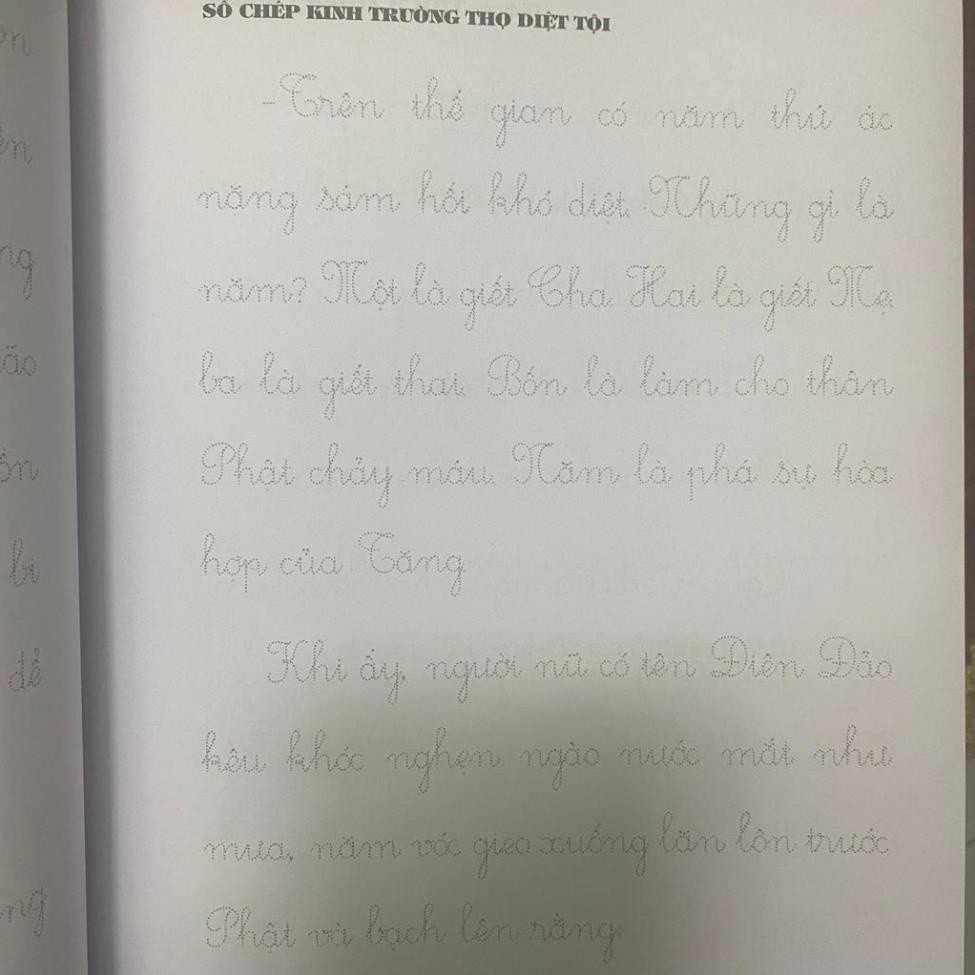 SỔ CHÉP KINH TRƯỜNG THỌ DIỆT TỘI
-Trên thế gian có năm thứ ác
năng sám hối khó diệt. Những gì là
năm? Một là giết Cha. Hai là giết Mẹ.
ba là giết thai. Bốn là làm cho thân
Phật chảy máu. Năm là phá sự hòa
hợp của Tăng.
Khi ấy, người nữ có tên Điên Đảo
kêu khóc nghẹn ngào nước mắt như
mưa, năm vóc gieo xuống lăn lộn trước
Phật và bạch lên rằng:
ên
ng
ão
ôn
bi
để
ng